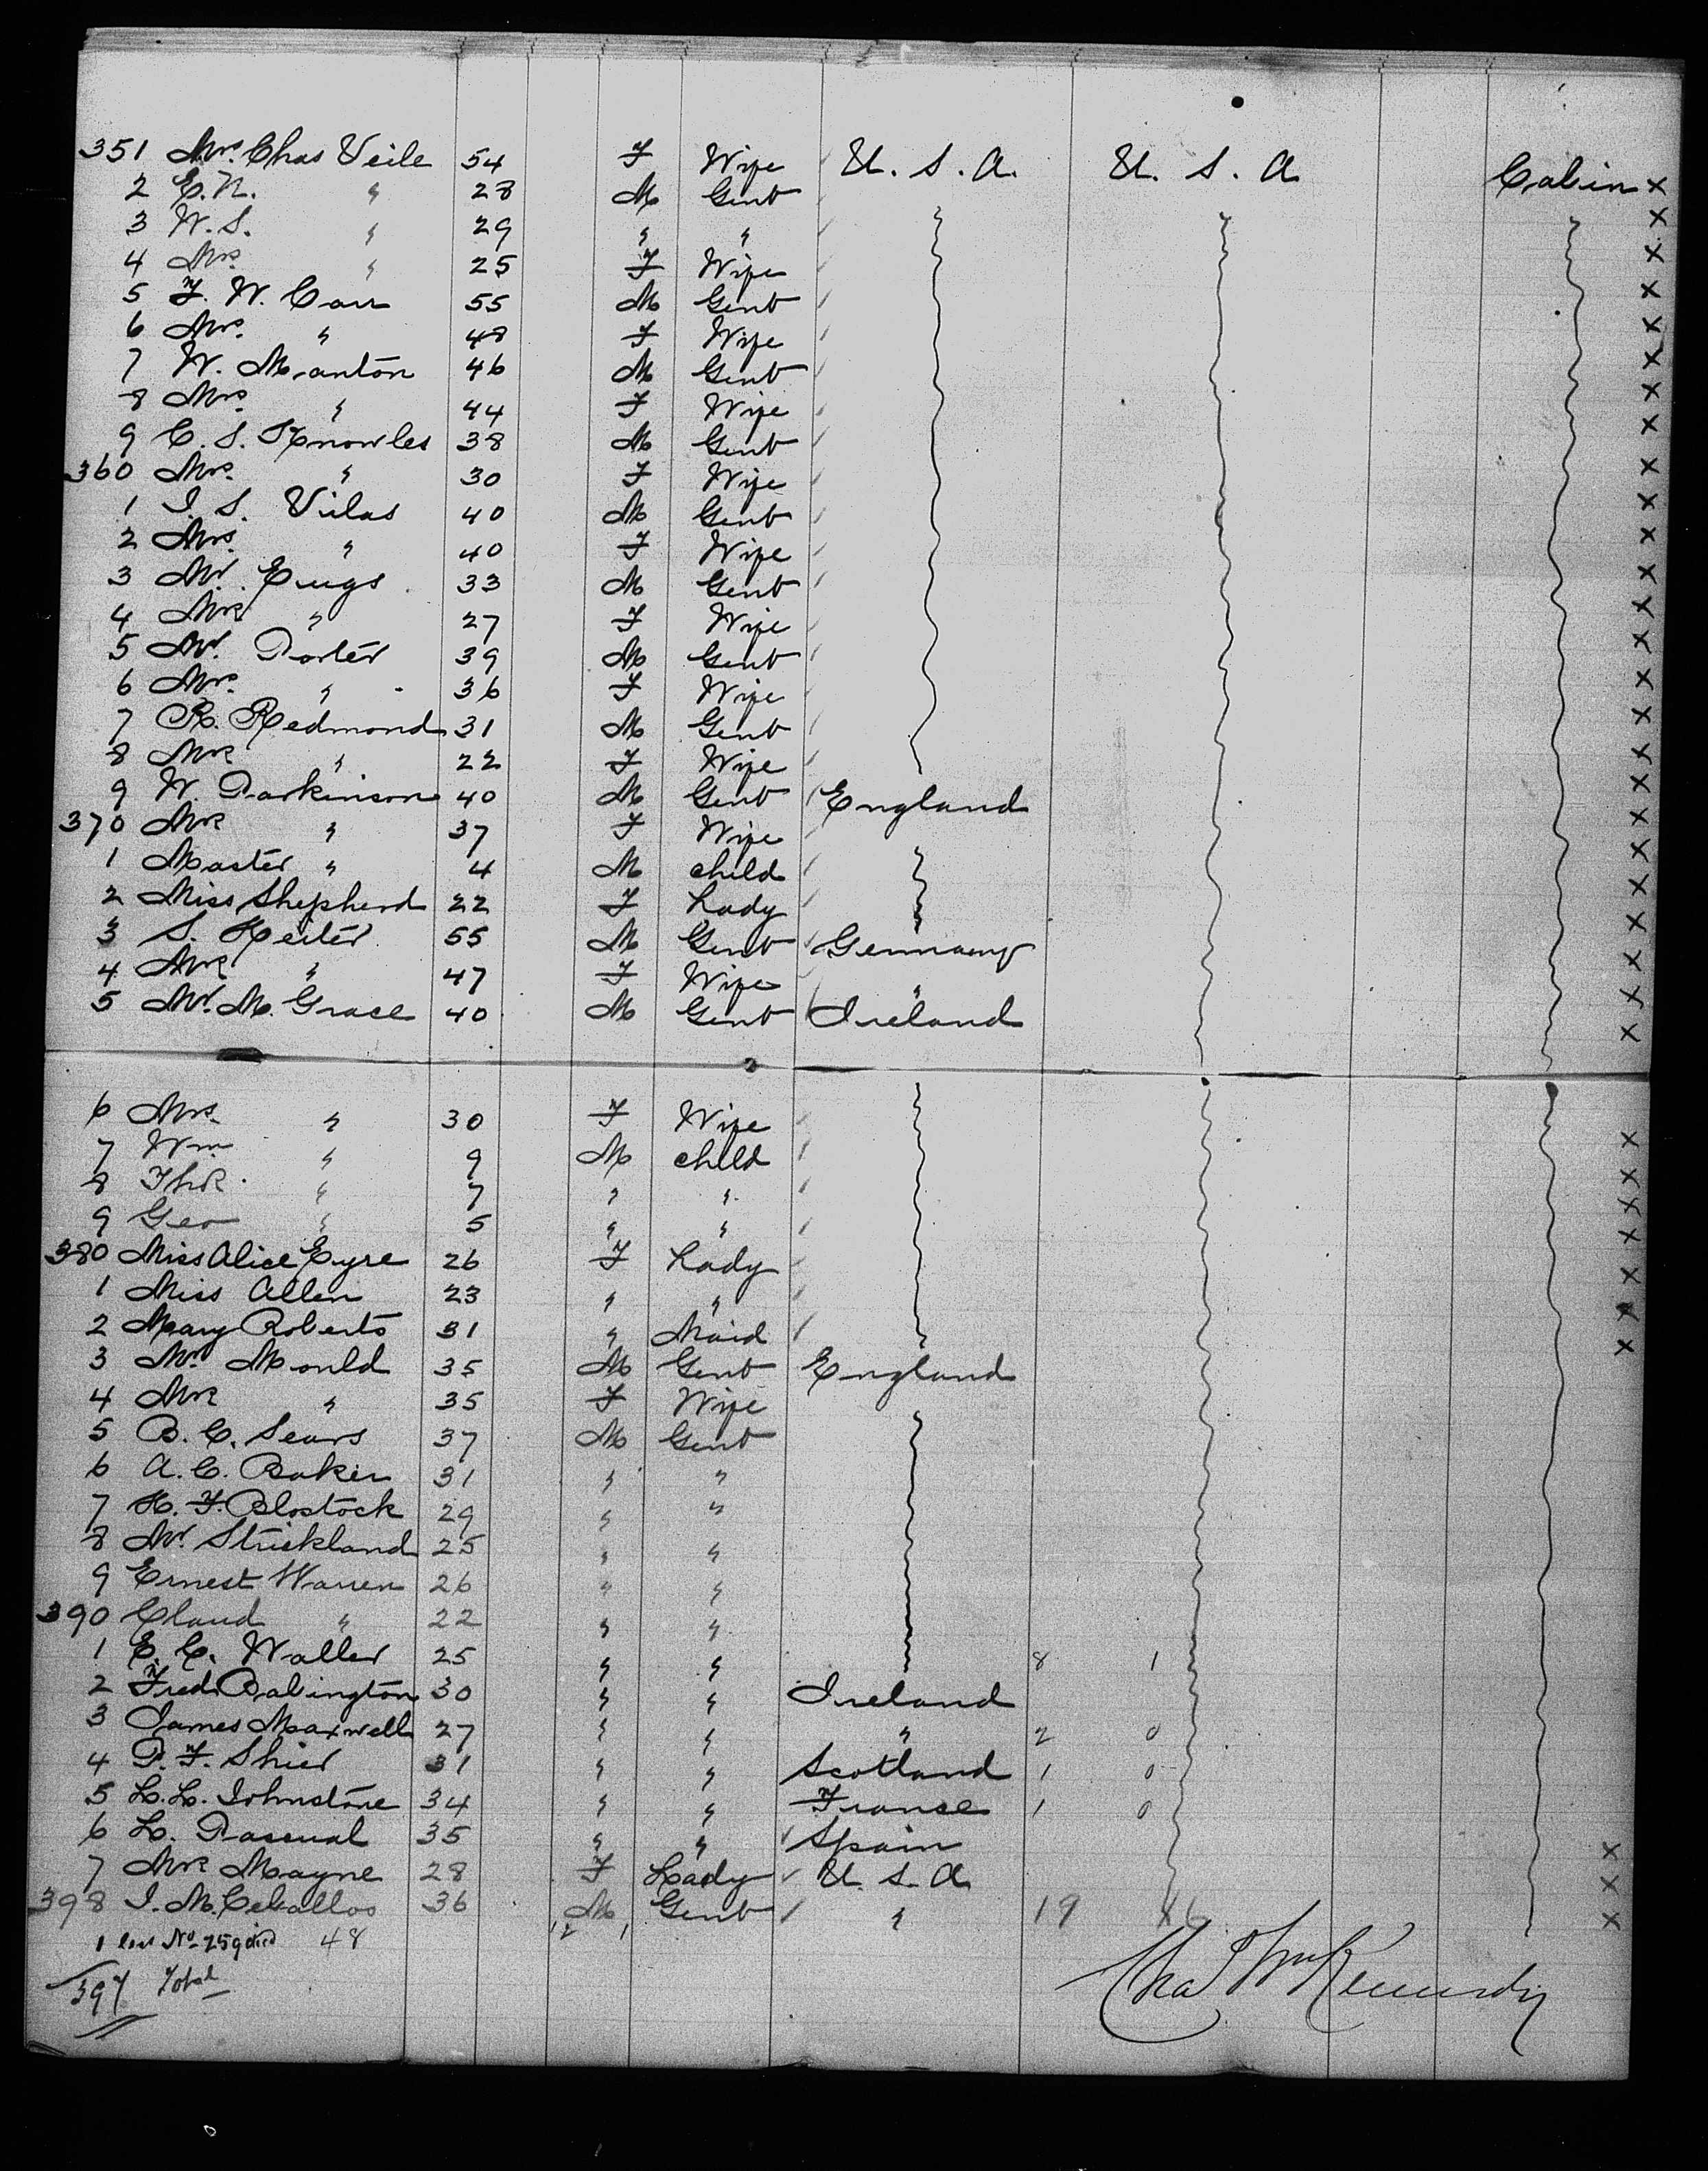 351 Mrs. Chas Veile 54 F Wife U. S. A. U. S. A Cabin x
2 E. N. " 28 M Gent x
3 W. S. " 29 " " x
4 Mrs. " 25 F Wife x
5 F. W. Carr 55 M Gent x
6 Mrs. " 48 F Wife x
7 W. Manton 46 M Gent x
8 Mrs. " 44 F Wife x
9 C. S. Knowles 38 M Gent x
360 Mrs. " 30 F Wife x
1 I. S. Vilas 40 M Gent x
2 Mrs. " 40 F Wife x
3 Mr. 33 M Gent x
4 Mrs " 27 F Wife x
5 Mr. Porter 39 M Gent x
6 Mrs. " 36 F Wife x
7 R. Redmond 31 M Gent x
8 Mrs " 22 F Wife x
9 W. Parkinson 40 M Gent England x
370 Mrs " 37 F Wife x
1 Master " 4 M child x
2 Miss Shepherd 22 F Lady x
3 S. Heiter 55 M Gent Germany x
4 Mrs " 47 F Wife " x
5 Mr. M. Grace 40 M Gent Ireland x
6 Mrs. " 30 F Wife x
7 Wm " 9 M child x
8 " 7 " " x
9 Geo " 5 " " x
380 Miss Alice Eyre 26 F Lady x
1 Miss Allen 23 " " x
2 Mary Roberts 31 " Maid x
3 Mr. Mould 35 M Gent England
4 Mrs " 35 F Wife
5 B. C. Sears 37 M Gent
6 A. C. Baker 31 " "
7 H. F. Blostock 29 " "
8 Mr. Strickland 25 " "
9 Ernest Warren 26 " "
390 Claud " 22 " "
1 E. C. Waller 25 " " 8 1
2 Fred Babington 30 " " Ireland
3 James Maxwell 27 " " " 2 0
4 P. F. Shier 31 " " Scotland 1 0
5 L. L. Johnstone 34 " " France 1 0
6 L. Pascual 35 " " Spain x
7 Mrs Mayne 28 F Lady U. S. A x
398 I. M. Ceballos 36 M Gent " 19 x
1 less No 259 died 48 12 1
397 Total
Chas Wm Kennedy